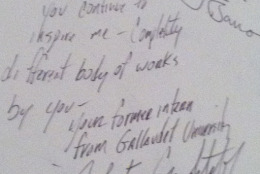 you continue to
inspire me - Completely
different body of works
by you -
your former intern
from Gallaudet University